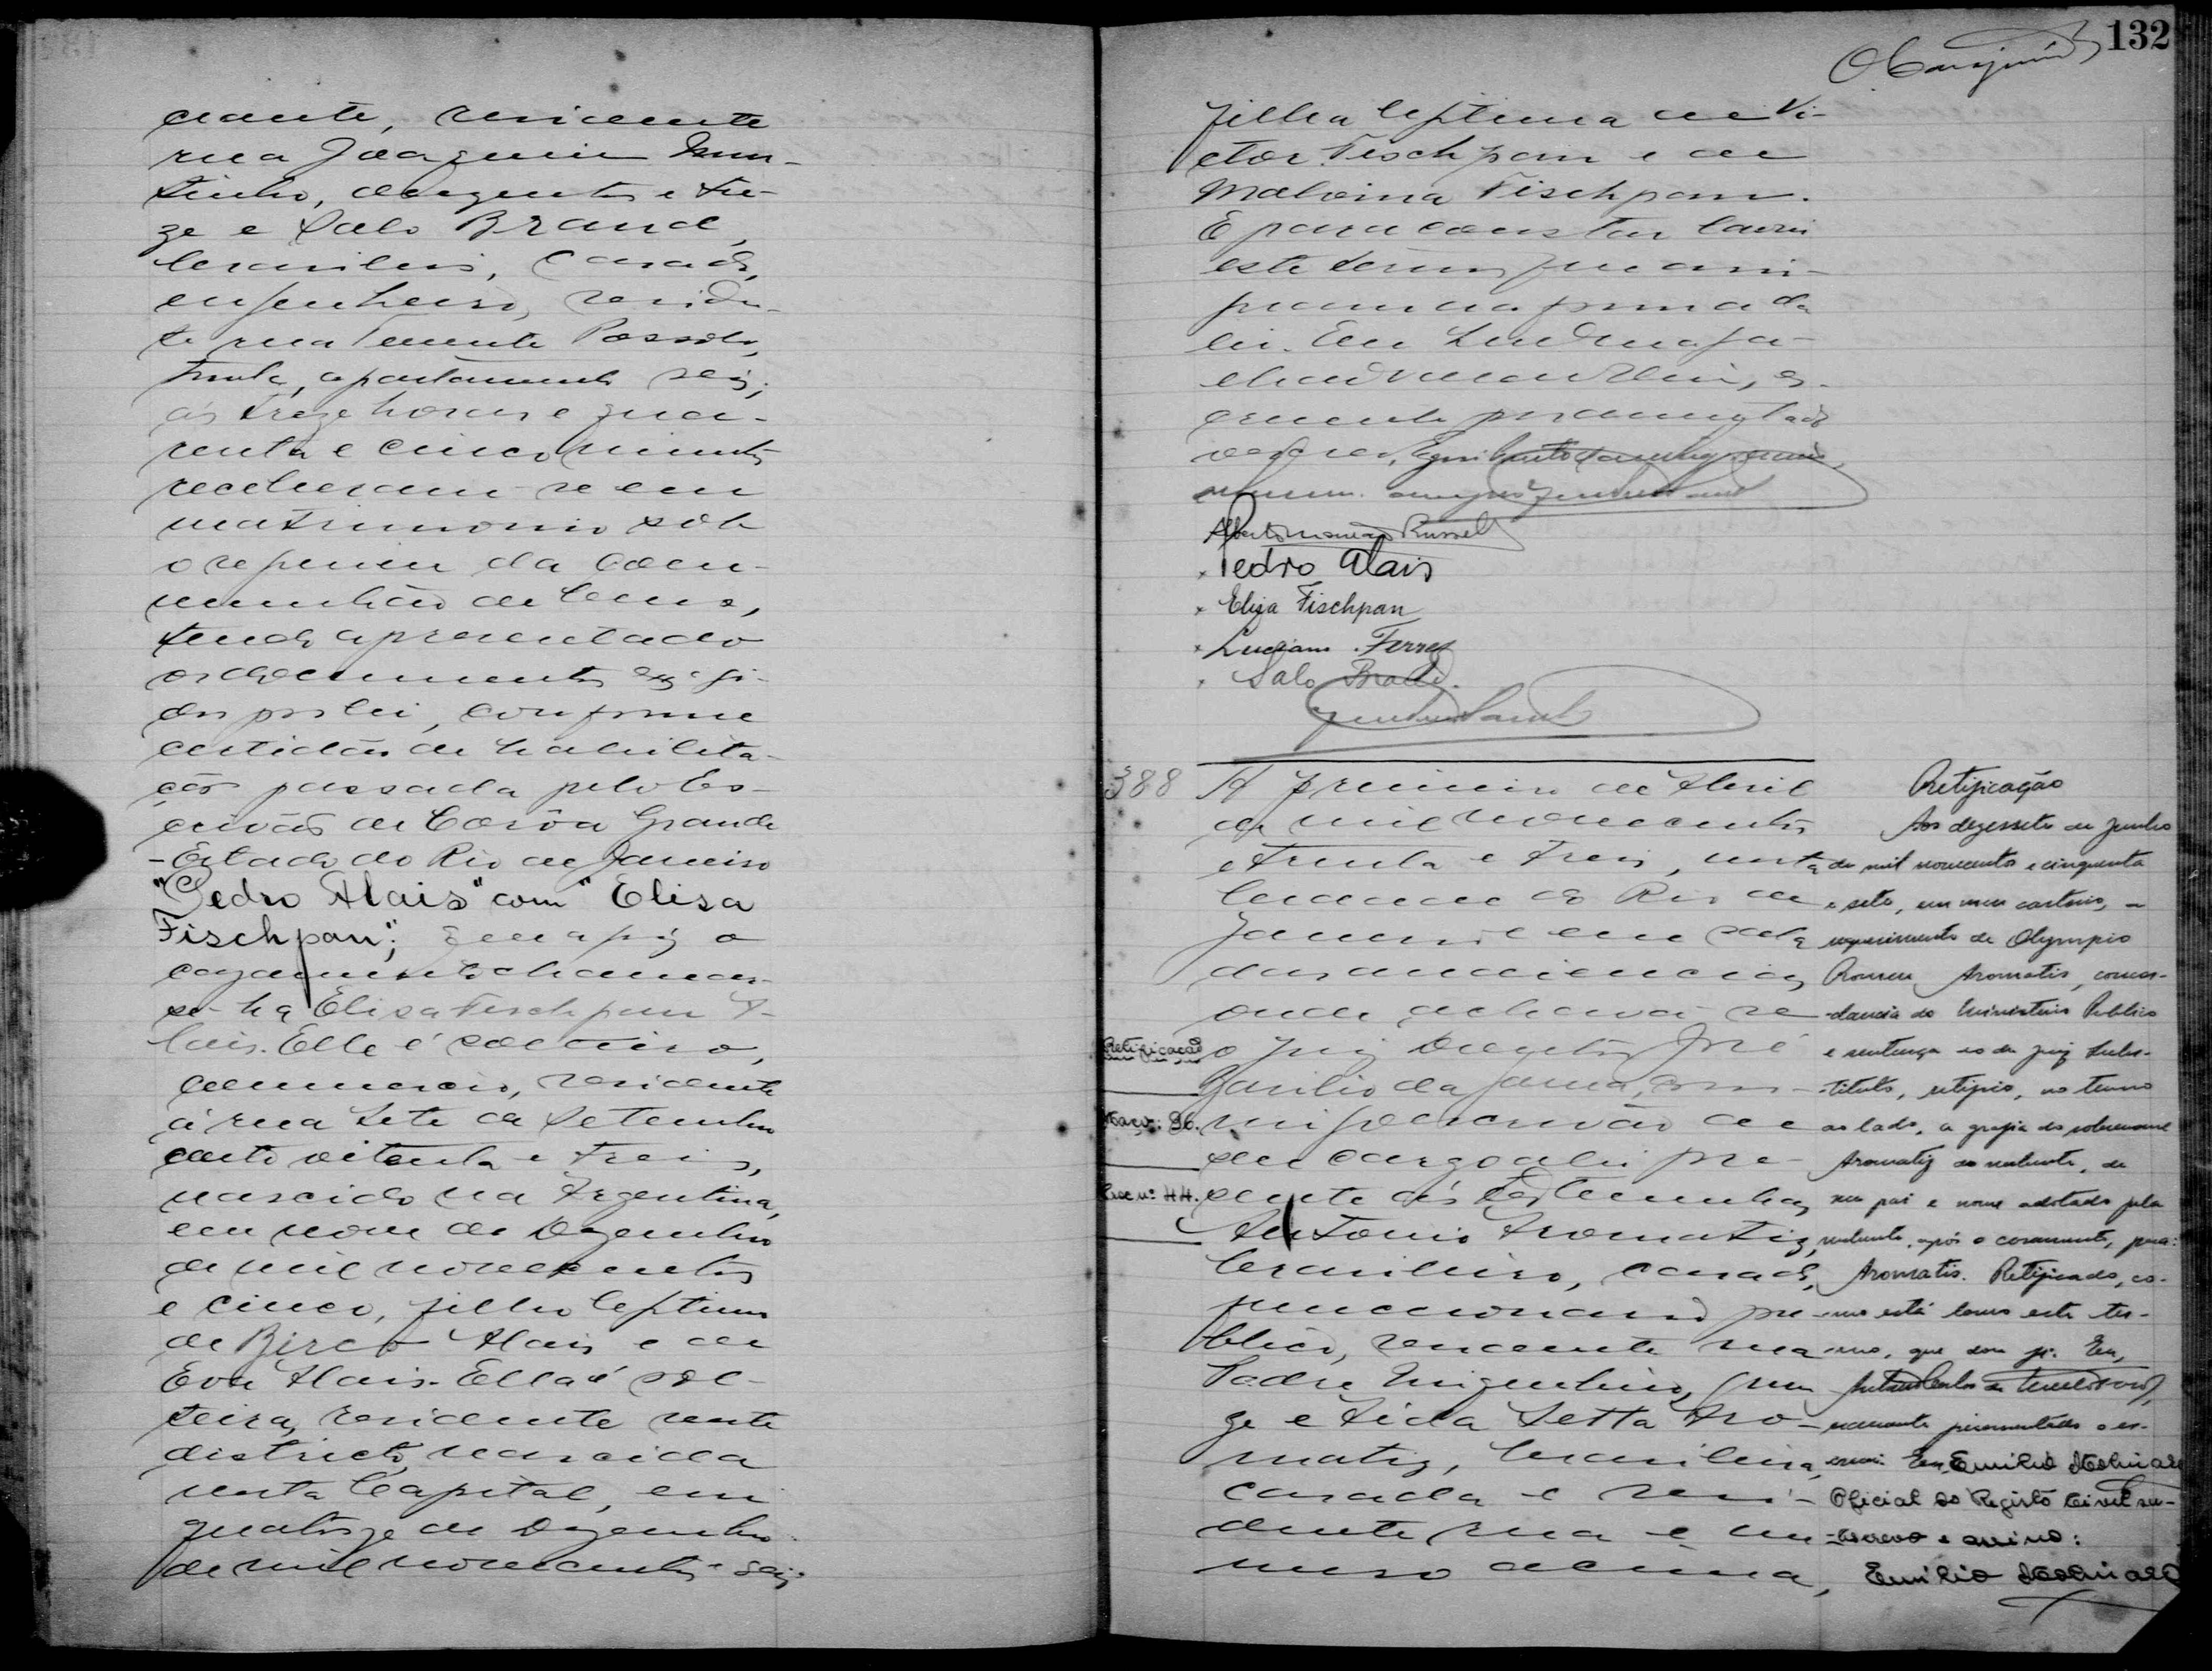 132
ciante, residente
rua Joaquim Mur-
tinho, duzentos e tre-
ze e Salo Brand,
brasileiro, casado,
engenheiro, residen-
te rua Tenente Possolo,
trinta, apartamento seis,
ás treze horas e qua-
renta e cinco minutos
receberam-se em
matrimonio sob
o regimen da com-
munhão de bens,
tendo apresentado
os documentos exigi-
dos por lei, conforme
certidão de habilita-
ção passada pelo Es-
crivão de Corôa Grande
- Estado do Rio de Janeiro
"Pedro Alais" com "Elisa
Fischpan"; que após o
casamento chamar-
se-ha Elisa Fischpan A-
lais. Elle é solteiro,
commercio, residente
á rua Sete de Setembro
cento oitenta e tres,
nascido na Argentina,
em nove de Dezembro
de mil novecentos
e cinco, filho legitimo
de Berco Alais e de
Eva Alais. Ella é sol-
teira, residente neste
districto, nascida
nesta Capital, em
quatorze de Dezembro
de mil novecentos e seis,
filha legitima de Vi-
ctor Fischpan e de
Malvina Fischpan.
E para constar lavrei
este termo que assi-
gnam na forma da
lei. Eu
crevente juramentado
Alberto Mourão Russell
Pedro Alais
Elisa Fischpan
Luciano Ferrez
Salo Brand.
388
A primeiro de Abril
de mil novecentos
e trinta e tres, nesta
cidade do Rio de
Janeiro e em sala
das audiencias
onde achava-se
o Juiz Doutor José
Basilio da Gama, com-
migo escrivão de
seu cargo ahi pre-
sente ás testemunhas
Antonio Aromatiz,
brasileiro, casado,
funccionario pu-
blico, residente rua
Padre Miguelino, quin-
ze e Aida Setta Aro-
matiz, brasileira,
casada e resi-
dente rua e nu-
mero acima,
Retificação
Proc nº 44.
Retificação
Aos dezessete de Junho
de mil novecentos e cinquenta
e sete, em meu cartorio, a
requerimento de Olympio
Romeu Aromatis, concor-
dancia do Ministerio Publico
e sentença do Juiz Subs-
tituto, retifico, no termo
ao lado, a grafia do sobrenome
Aromatiz do nubente, de
seu pai e nome adotado pela
nubente, após o casamento, para:
Aromatis. Retificado, co-
mo está lavro este ter-
mo, que dou fé. Eu,
escrevente juramentado o es-
crevi. Eu, Emilio
Oficial do Registo Civil su-
bscrevo e assino:
Emilio